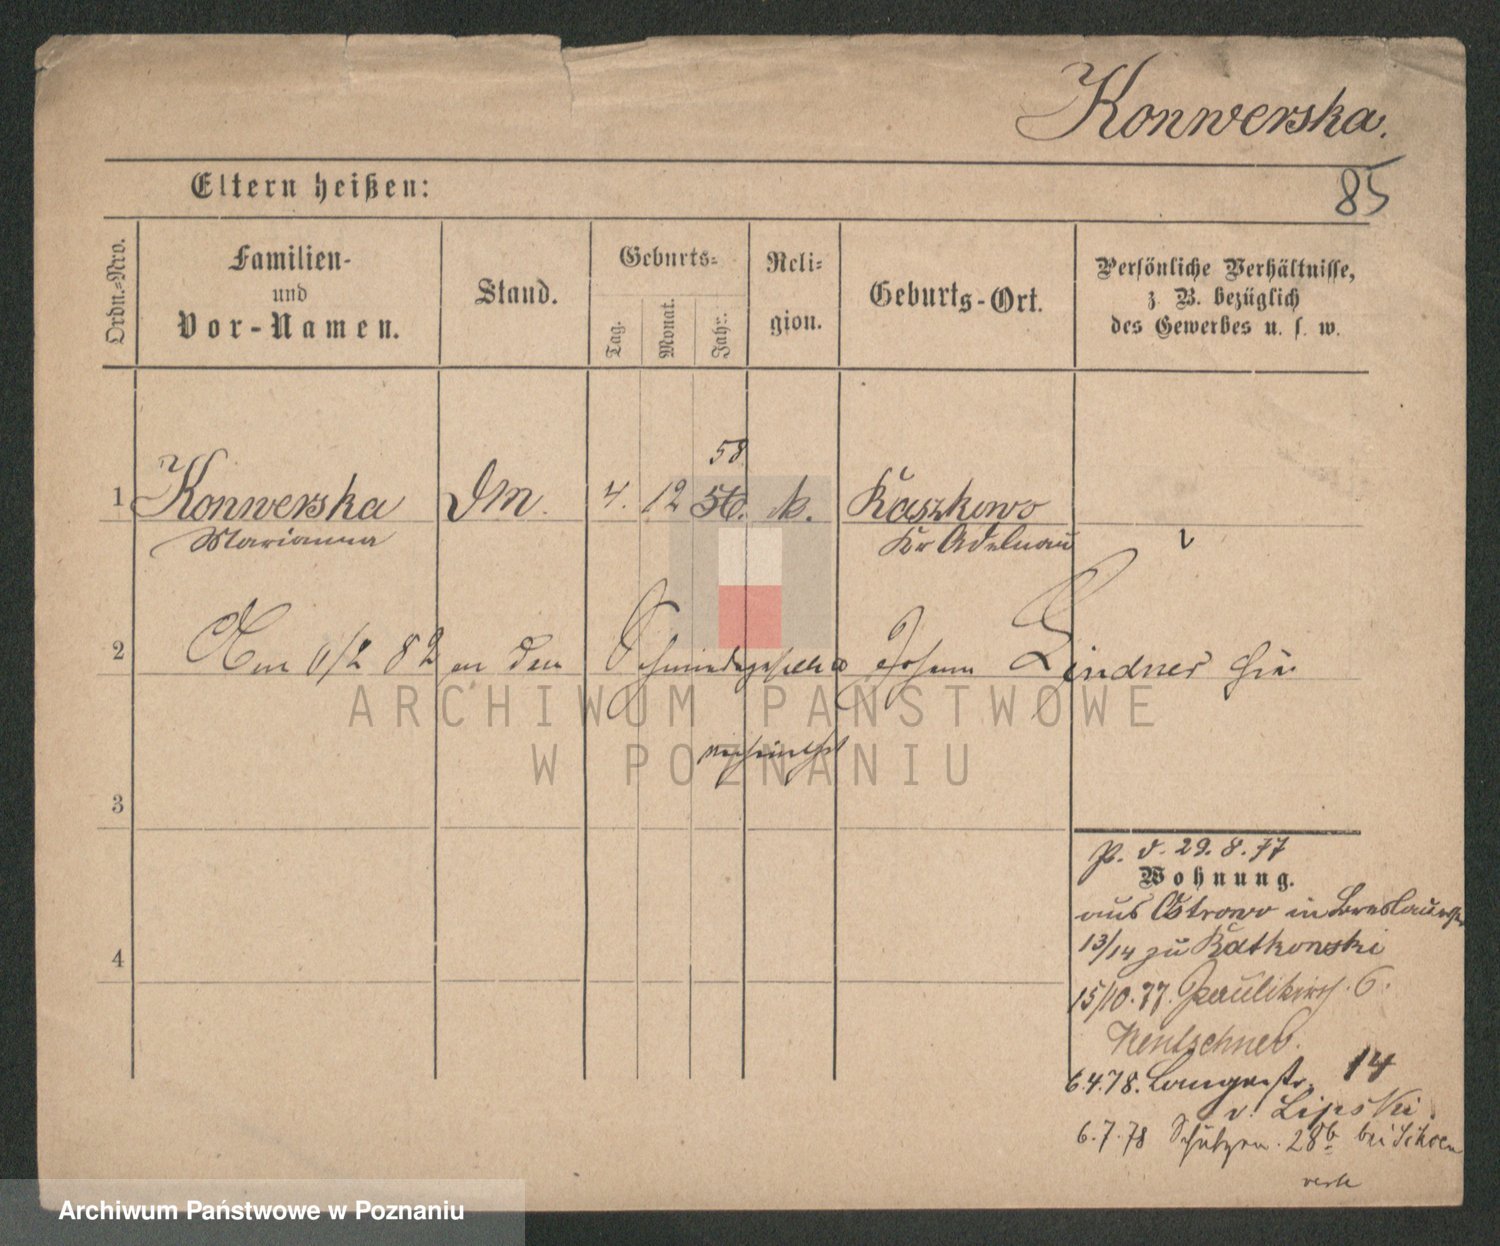 Konwerska.
85
Eltern heißen:
Ordn.-Nro.
Familien-
und
Vor-Namen.
Stand.
Geburts-
Tag.
Monat.
Jahr.
Reli-
gion.
Geburts-Ort.
Persönliche Verhältnisse,
z. B. bezüglich
des Gewerbes u. s. w.
58
1 Konwerska DM. 4. 12 56. k. Kaszkowo
Marianna Kr Adelnau
2 Am 6/2 82 an den Schmiedegesellen Johann Lindner hier
verheirathet
3
4
p. v. 29. 8. 77
Wohnung.
aus Ostrowo in Breslauerstr
13/14 zu Ratkowski
15/10. 77. Paulikirch. 6.
Rentschner.
6.4.78. Langestr. 14
v. Lipski.
6.7.78 Schützen. 28b bei
ARCHIWUM PAŃSTWOWE
W POZNANIU
Archiwum Państwowe w Poznaniu